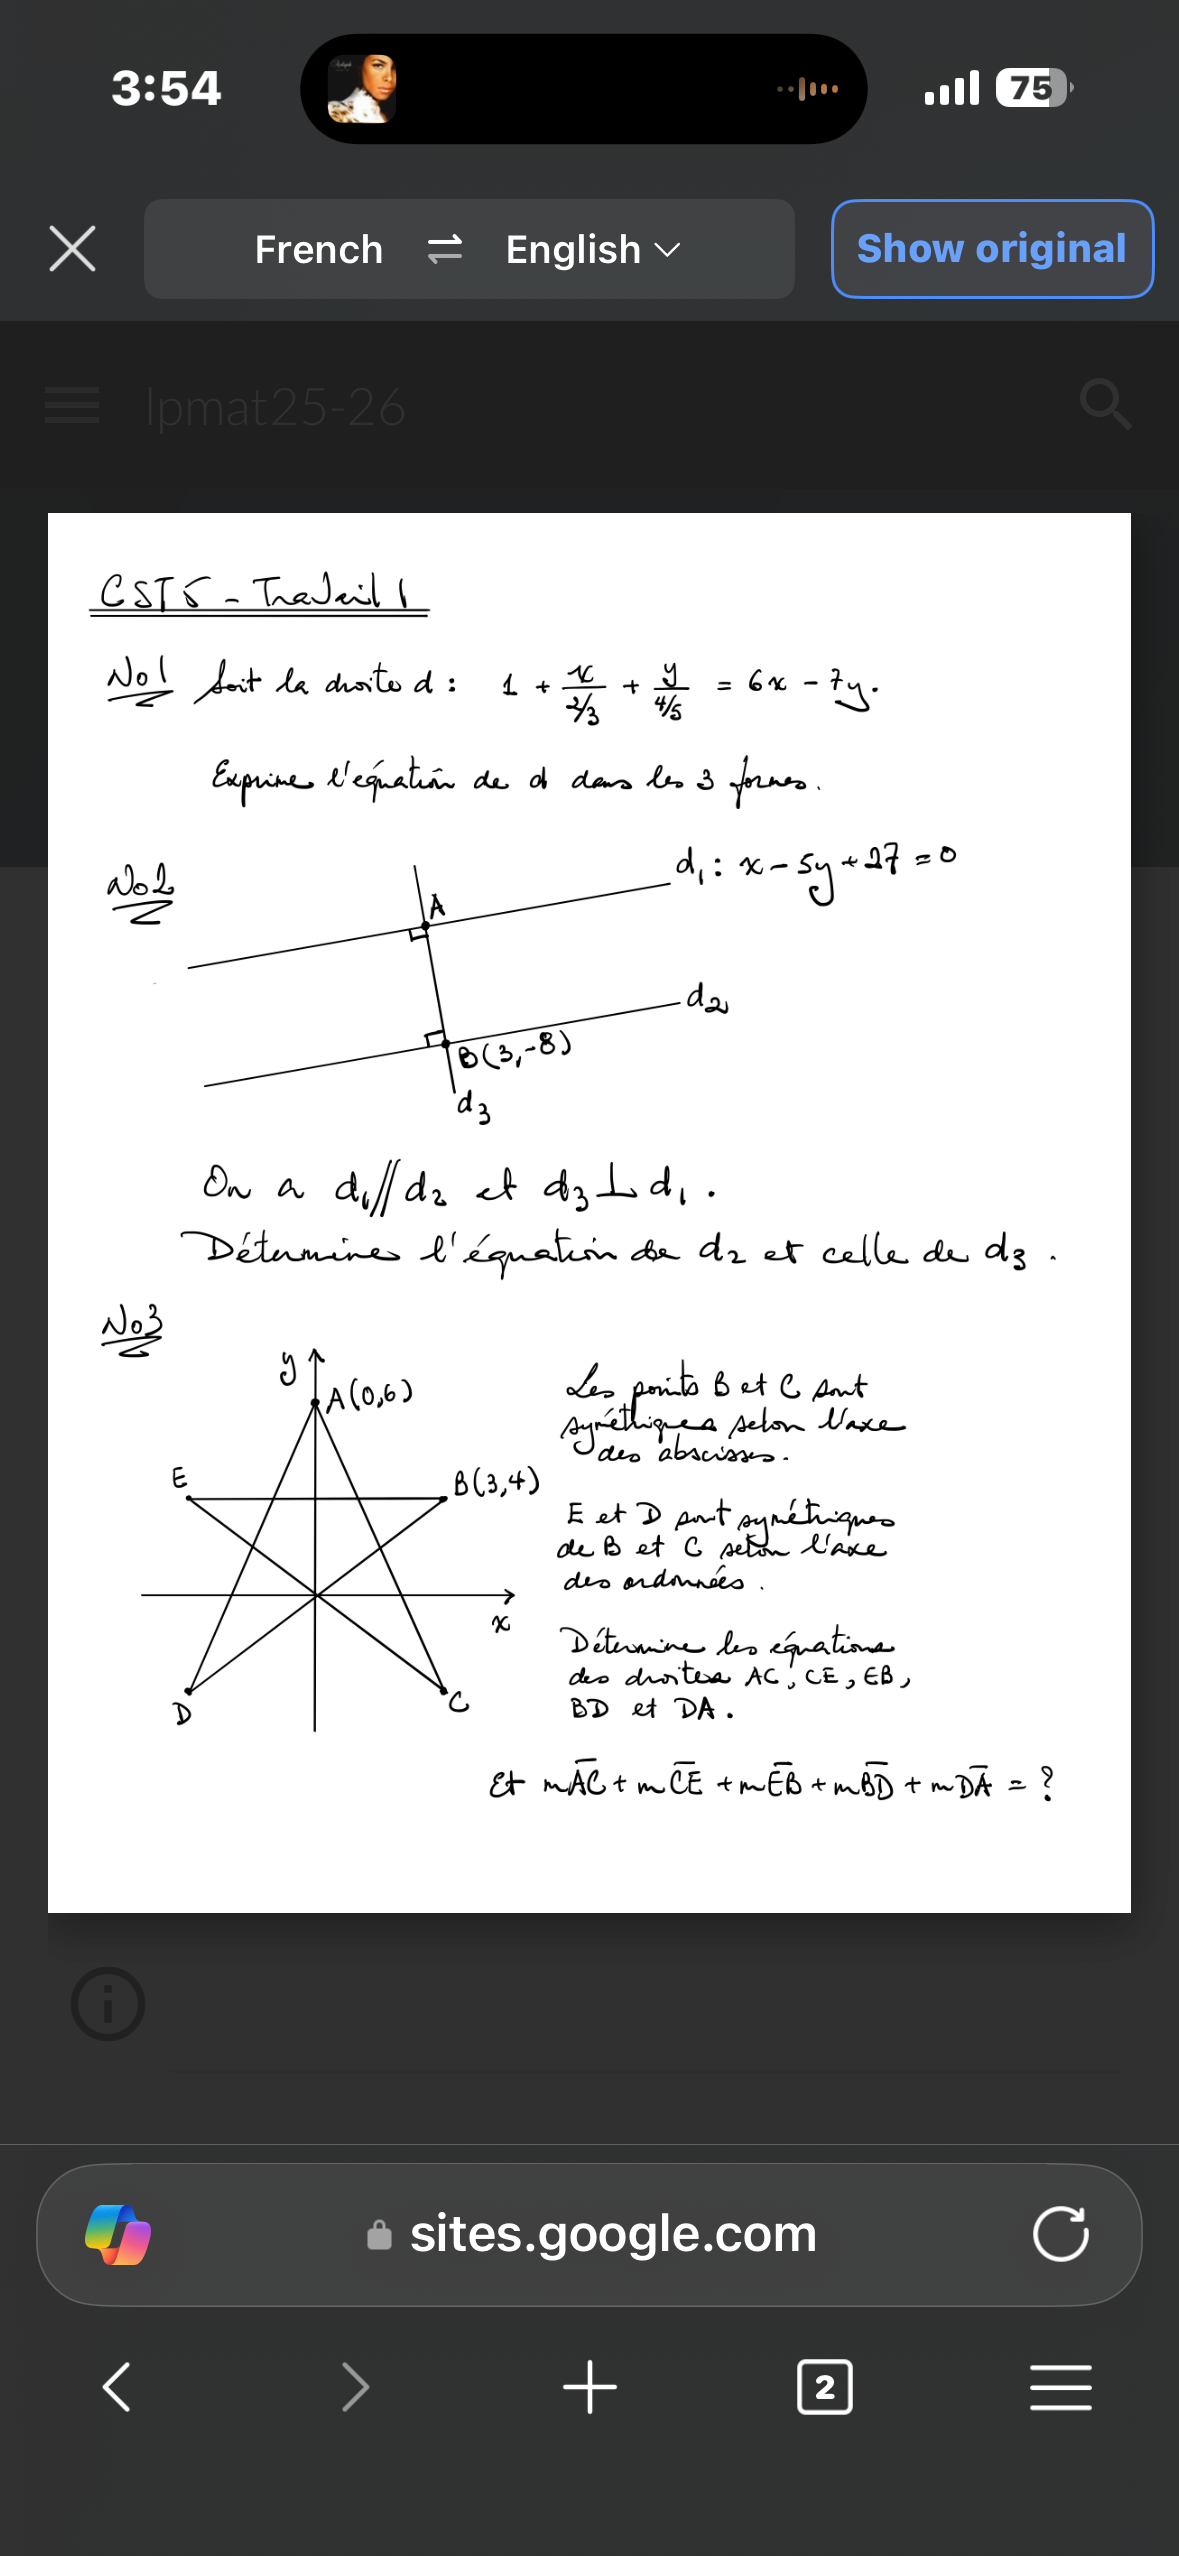 3:54
75
French ⇌ English
Show original
lpmat25-26
CST5 - Travail 1
No1 Soit la droite d : 1 + x/(2/3) + y/(4/5) = 6x - 7y.
Exprime l'équation de d dans les 3 formes.
No2
d₁ : x - 5y + 27 = 0
A
d₂
B(3,-8)
d₃
On a d₁//d₂ et d₃⊥d₁.
Détermines l'équation de d₂ et celle de d₃.
No3
y
A(0,6)
E
B(3,4)
x
D
C
Les points B et C sont
symétriques selon l'axe
des abscisses.
E et D sont symétriques
de B et C selon l'axe
des ordonnées.
Détermine les équations
des droites AC, CE, EB,
BD et DA.
Et mA̅C̅ + mC̅E̅ + mE̅B̅ + mB̅D̅ + mD̅A̅ = ?
sites.google.com
2